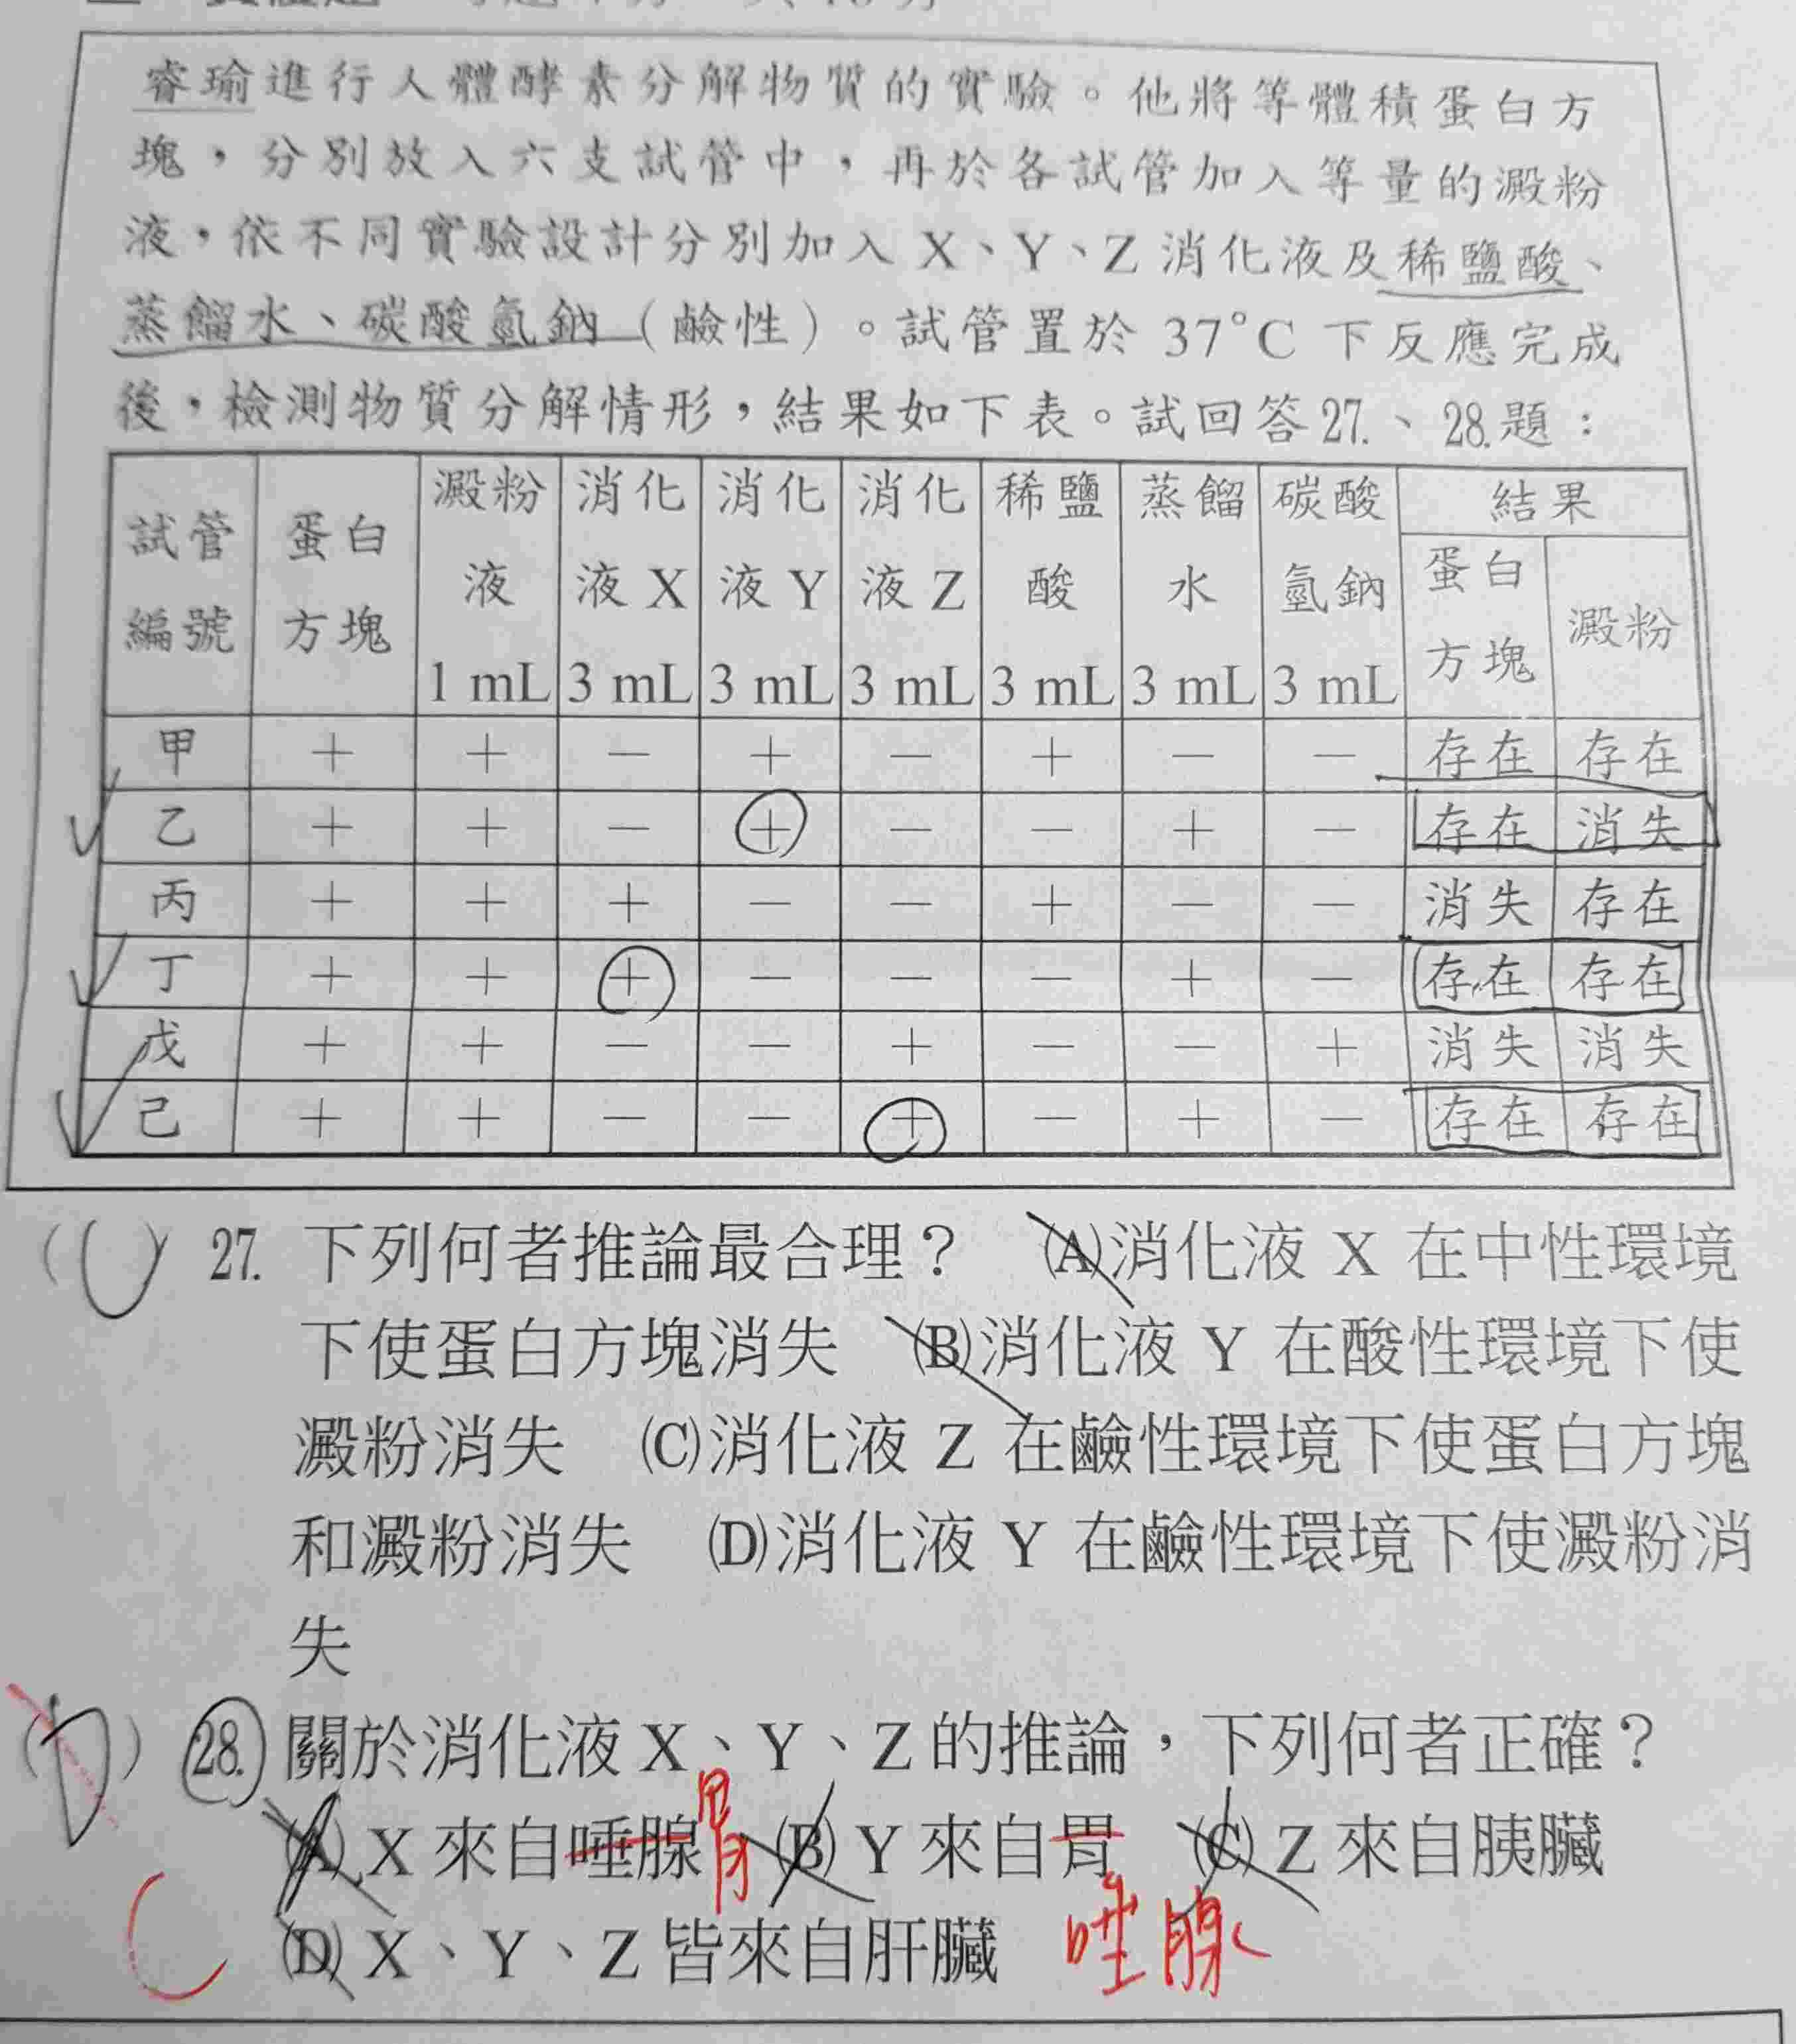 睿瑜進行人體酵素分解物質的實驗。他將等體積蛋白方
塊，分別放入六支試管中，再於各試管加入等量的澱粉
液，依不同實驗設計分別加入 X、Y、Z 消化液及稀鹽酸、
蒸餾水、碳酸氫鈉（鹼性）。試管置於 37°C 下反應完成
後，檢測物質分解情形，結果如下表。試回答27.、28.題：
試管編號 蛋白方塊 澱粉液 1 mL 消化液 X 3 mL 消化液 Y 3 mL 消化液 Z 3 mL 稀鹽酸 3 mL 蒸餾水 3 mL 碳酸氫鈉 3 mL 結果 蛋白方塊 澱粉
甲 ＋ ＋ － ＋ － ＋ － － 存在 存在
乙 ＋ ＋ － ＋ － － ＋ － 存在 消失
丙 ＋ ＋ ＋ － － ＋ － － 消失 存在
丁 ＋ ＋ ＋ － － － ＋ － 存在 存在
戊 ＋ ＋ － － ＋ － － ＋ 消失 消失
己 ＋ ＋ － － ＋ － ＋ － 存在 存在
(C) 27. 下列何者推論最合理？ (A)消化液 X 在中性環境
下使蛋白方塊消失 (B)消化液 Y 在酸性環境下使
澱粉消失 (C)消化液 Z 在鹼性環境下使蛋白方塊
和澱粉消失 (D)消化液 Y 在鹼性環境下使澱粉消
失
(D) 28. 關於消化液 X、Y、Z 的推論，下列何者正確？
(A) X 來自唾腺 胃 (B) Y 來自胃 (C) Z 來自胰臟
C (D) X、Y、Z 皆來自肝臟 唾腺